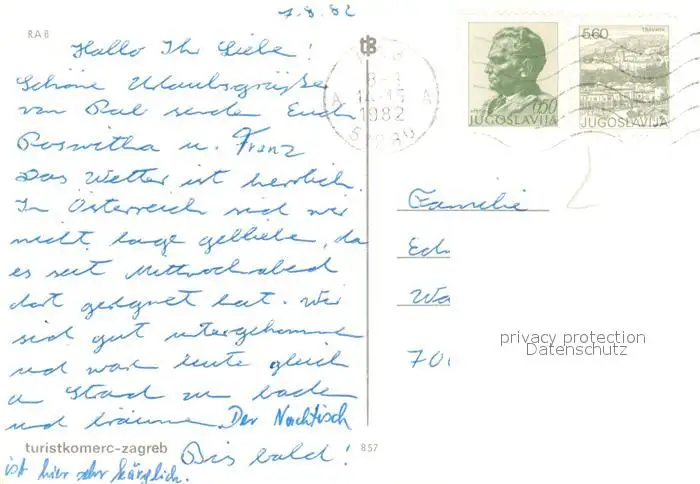 7.8.82
RAB
Hallo Ihr Lieben!
Schöne Urlaubsgrüße
von Rab senden Euch
Roswitha u. Franz
Das Wetter ist herrlich.
In Österreich sind wir
nicht lange geblieben, da
es seit Mittwochabend
dort geregnet hat. Wir
sind gut untergekommen
und waren heute gleich
am Strand zum baden
und bräunen. Der Nachtisch
ist hier sehr kärglich.
Bis bald!
turistkomerc-zagreb
857
tB
8-8
14-15
1982
A A
0.50
JUGOSLAVIJA
5.60
TRAVNIK
JUGOSLAVIJA
Familie
privacy protection
Datenschutz